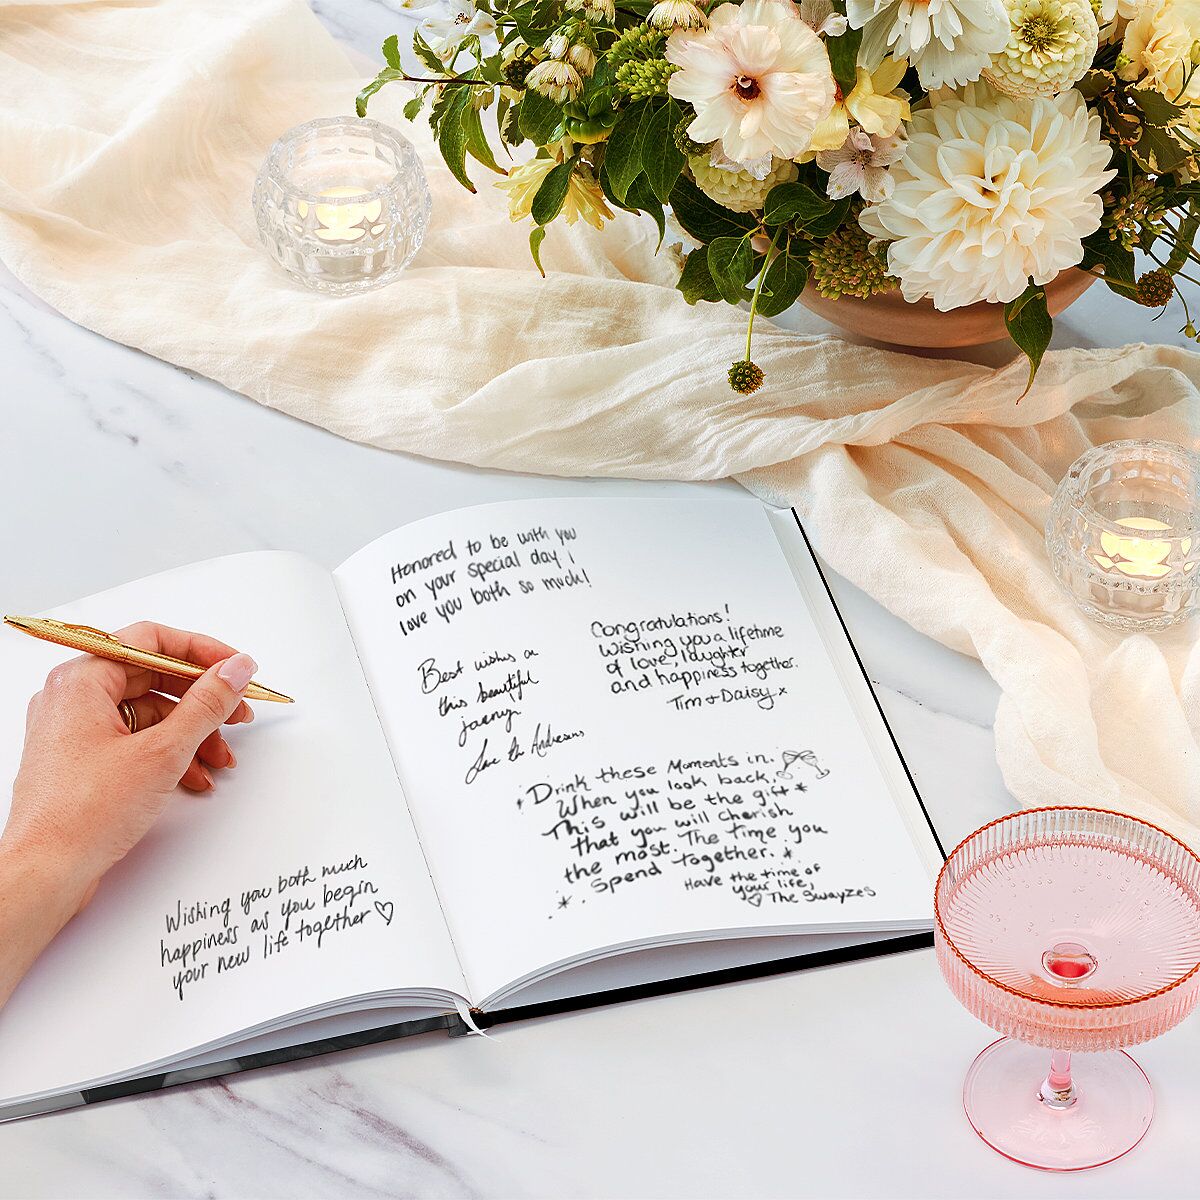 Wishing you both much
happiness as you begin
your new life together ♡
Honored to be with you
on your special day I
love you both so much!
Congratulations!
Wishing you a lifetime
of love, laughter
and happiness together.
Tim & Daisy x
Best wishes on
this beautiful
journey
Love
Drink these Moments in.
When you look back,
This will be the gift *
that you will cherish
the most. The time you
Spend together. *
Have the time of
your life,
♡ The Swayzes